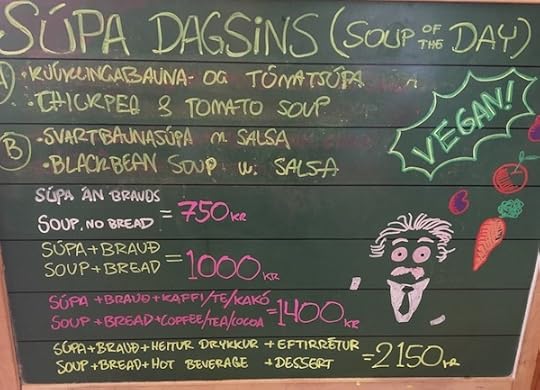 SÚPA DAGSINS (SOUP OF THE DAY)
A • KJÚKLINGABAUNA- OG TÓMATSÚPA
• CHICKPEA & TOMATO SOUP
VEGAN!
B • SVARTBAUNASÚPA m SALSA
• BLACKBEAN SOUP w. SALSA
SÚPA ÁN BRAUÐS
SOUP, NO BREAD = 750 KR
SÚPA + BRAUÐ
SOUP + BREAD = 1000 KR
SÚPA + BRAUÐ + KAFFI/TE/KAKÓ
SOUP + BREAD + COFFEE/TEA/COCOA = 1400 KR
SÚPA + BRAUÐ + HEITUR DRYKKUR + EFTIRRÉTUR
SOUP + BREAD + HOT BEVERAGE + DESSERT = 2150 KR